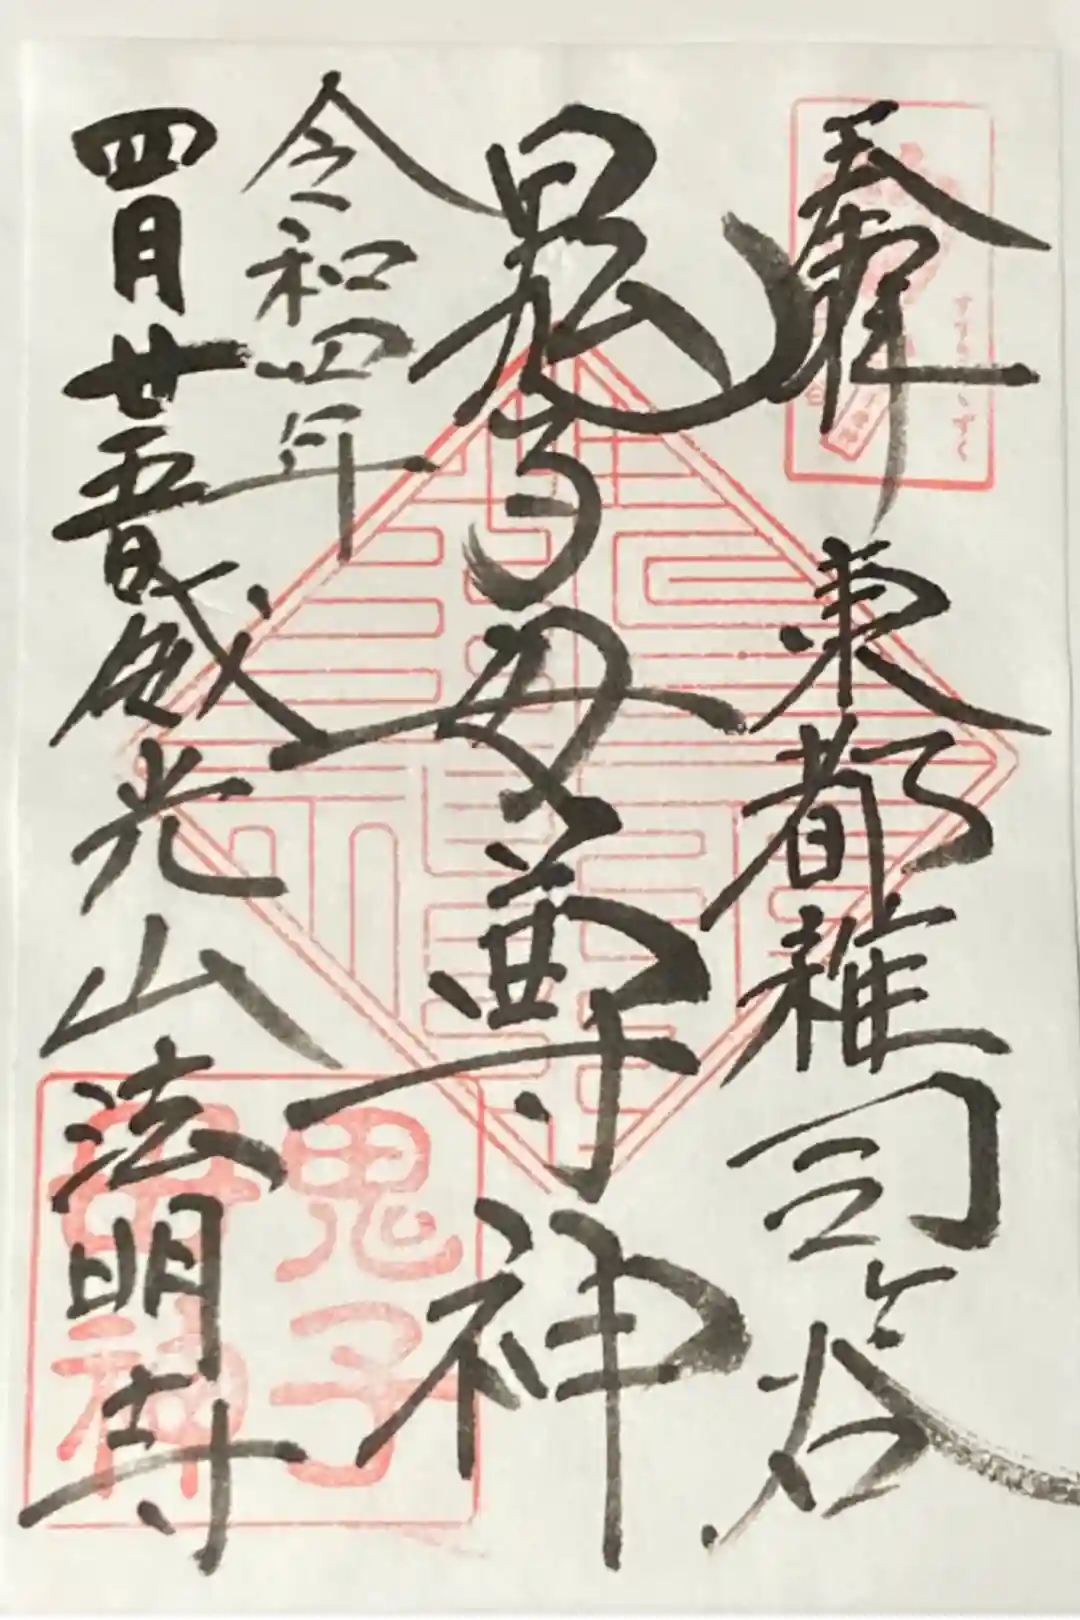 奉拝
東都雑司ヶ谷
鬼子母尊神
令和四年
四月廿五日
威光山法明寺
すすきみみずく
鬼子
母神